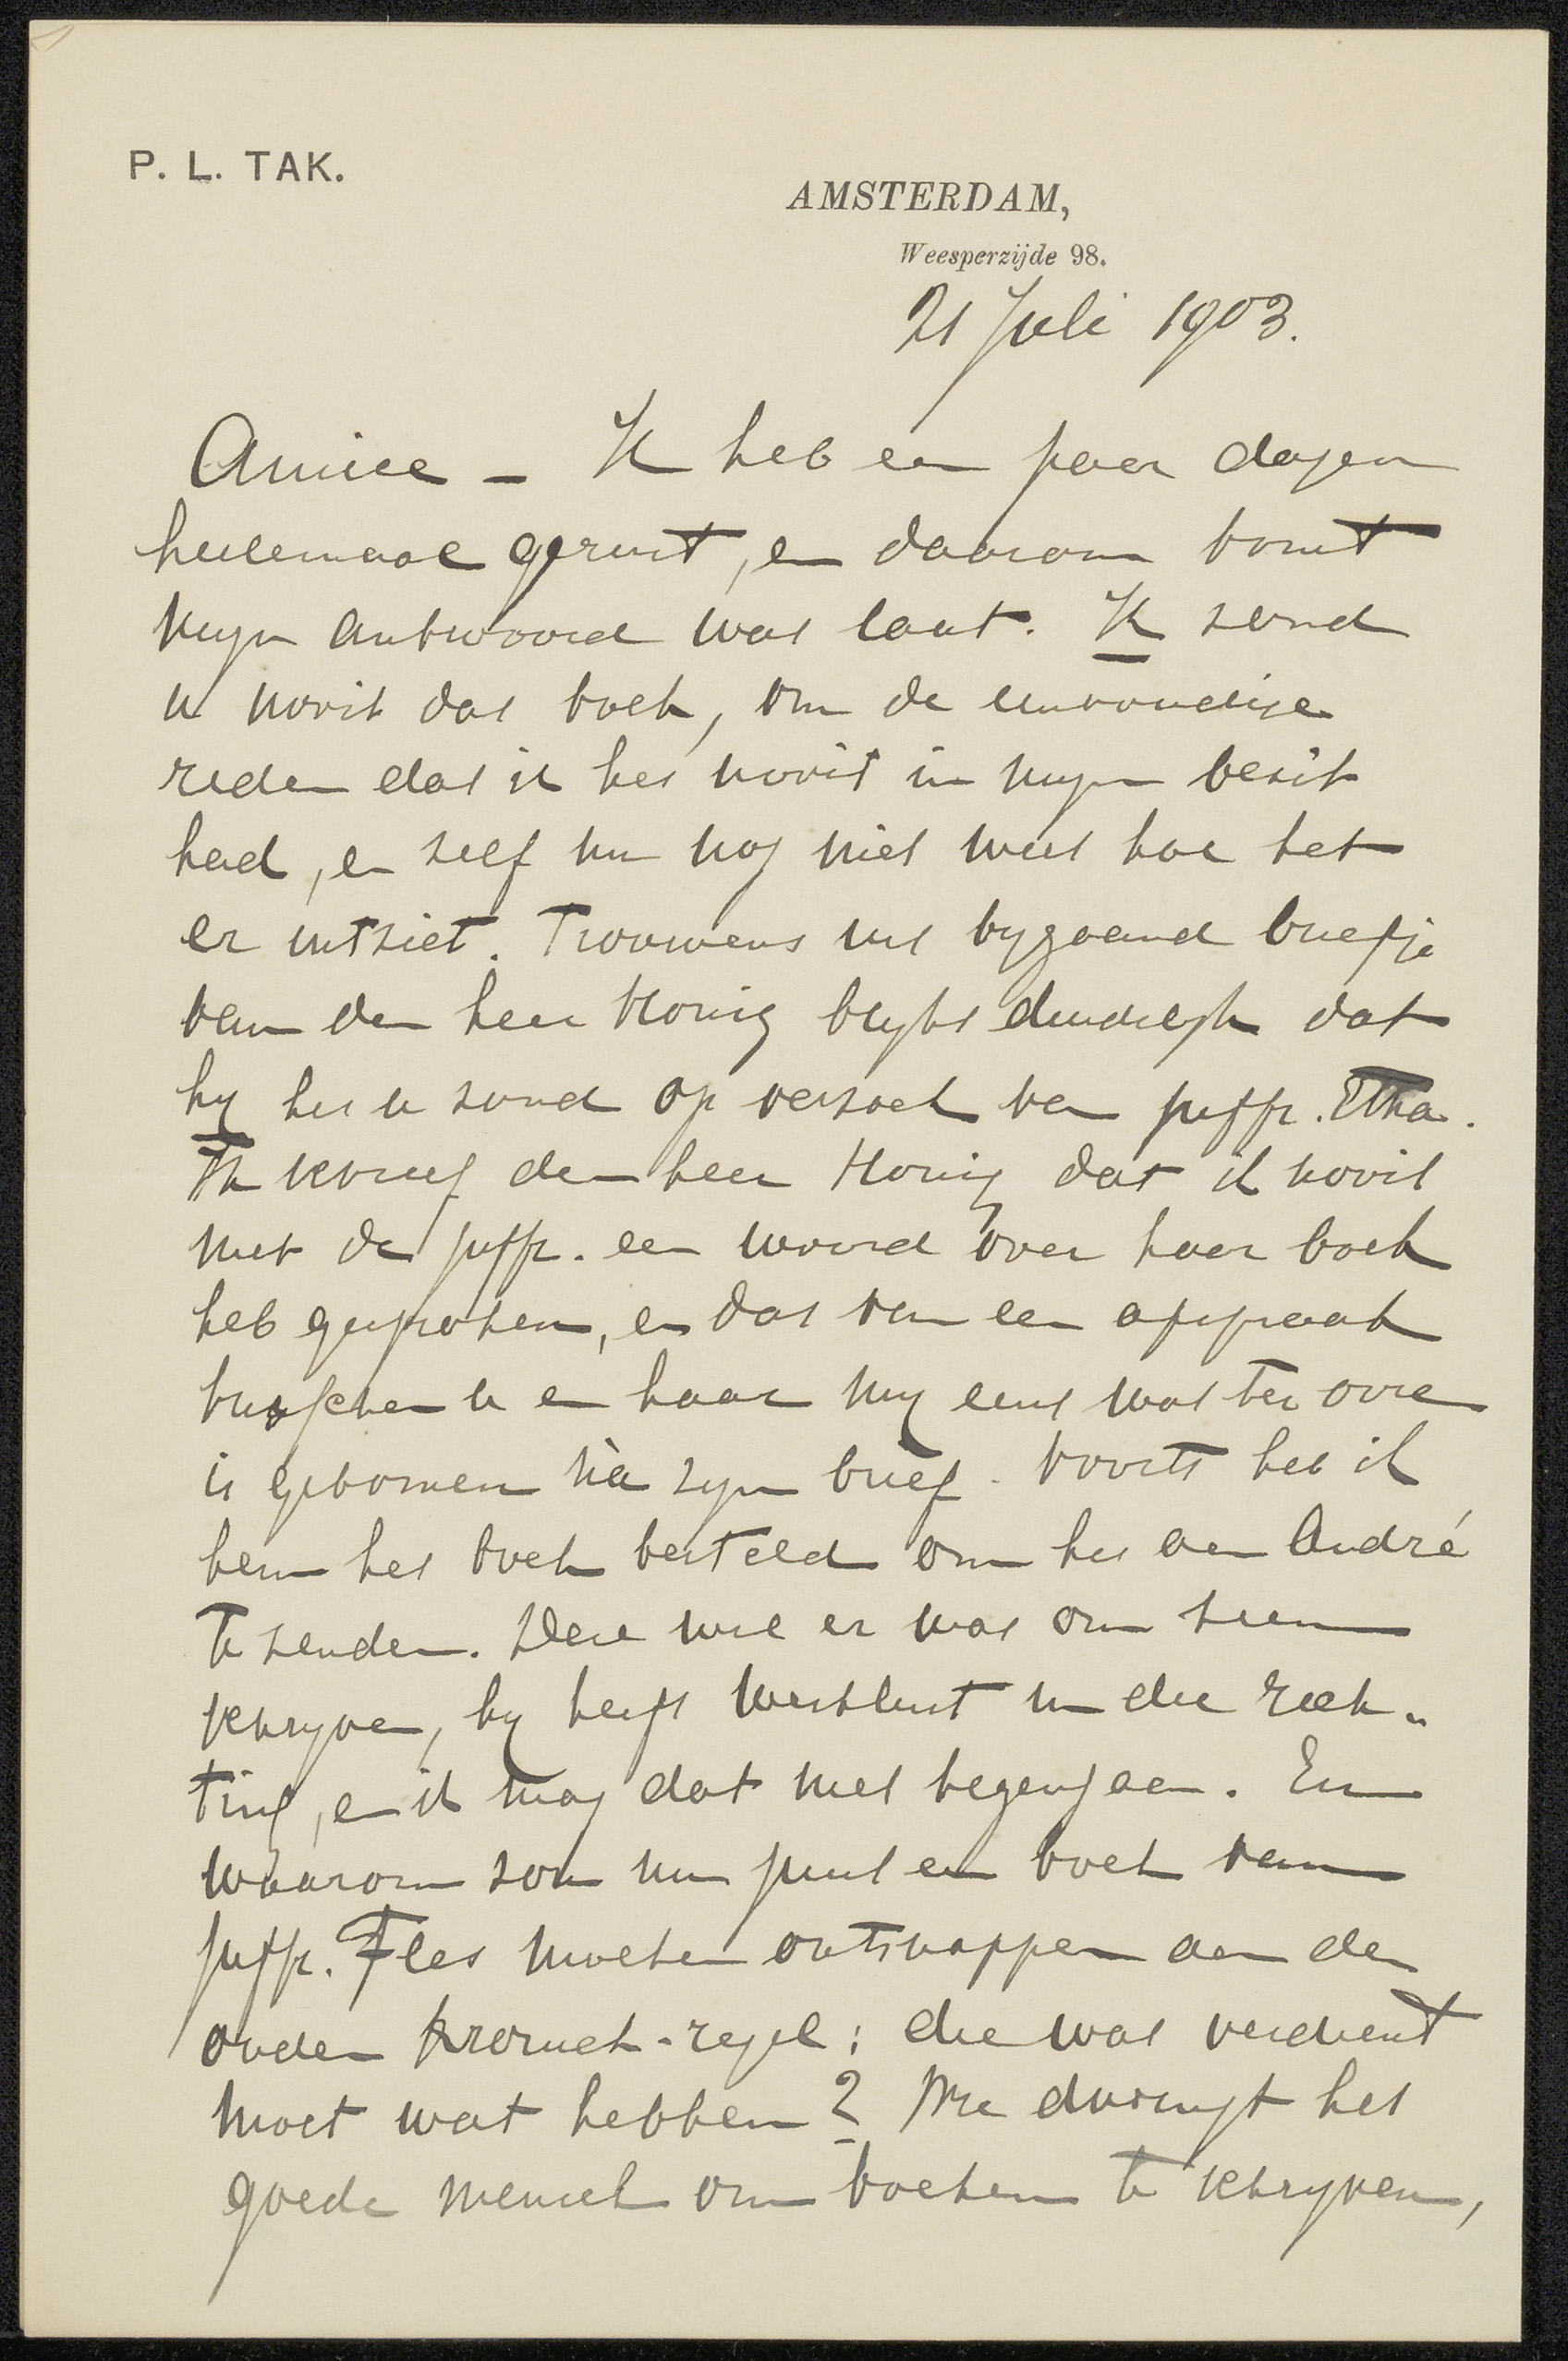 P. L. TAK.
AMSTERDAM,
Weesperzijde 98.
21 Juli 1903.
Amice – Ik heb een paar dagen
heelemaal gerust, en daarom komt
mijn antwoord wat laat. Ik zond
u nooit dat boek, om de eenvoudige
reden dat ik het nooit in mijn bezit
had, en zelf nu nog niet weet hoe het
er uitziet. Trouwens uit bijgaand briefje
van den heer Honig blijkt duidelijk dat
hij het u zond op verzoek van juffr.
Ik schreef den heer Honig dat ik nooit
met de juffr. een woord over haar boek
heb gesproken, en dat van een afspraak
tusschen u en haar mij eerst wat ter oore
is gekomen nà zijn brief. Voorts heb ik
hem het boek besteld om het aan André
te zenden. Deze wil er wat om heen
schrijven, hij heeft werklust in die rich-
ting, en ik mag dat niet tegengaan. En
waarom zou nu juist een boek van
juffr. moeten ontsnappen aan den
ouden Kroniek-regel: die wat verdient
moet wat hebben? Wie dwingt het
goede mensch om boeken te schrijven,